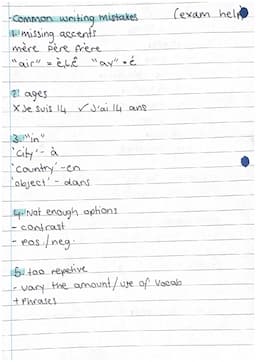 - Common writing mistakes (exam help
1. missing accents
mère père frère
"air" = è, Ê "ay" = é
2. ages
X Je suis 14 ✓ J'ai 14 ans
3. "in"
'city' - à
'country' - en
'object' - dans
4. Not enough options
- contrast
- pos/neg.
5. too repetive
- vary the amount/use of vocab
+ phrases